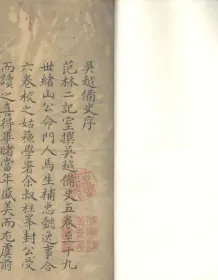 吳越備史序
范林二記室撰吳越備史五卷至十九
世緒山公命門人馬生補忠懿逸事合
六卷梓之姑蘇學署余叔柱峯封公受
而讀之喜得畢睹當年盛美而尤虞前